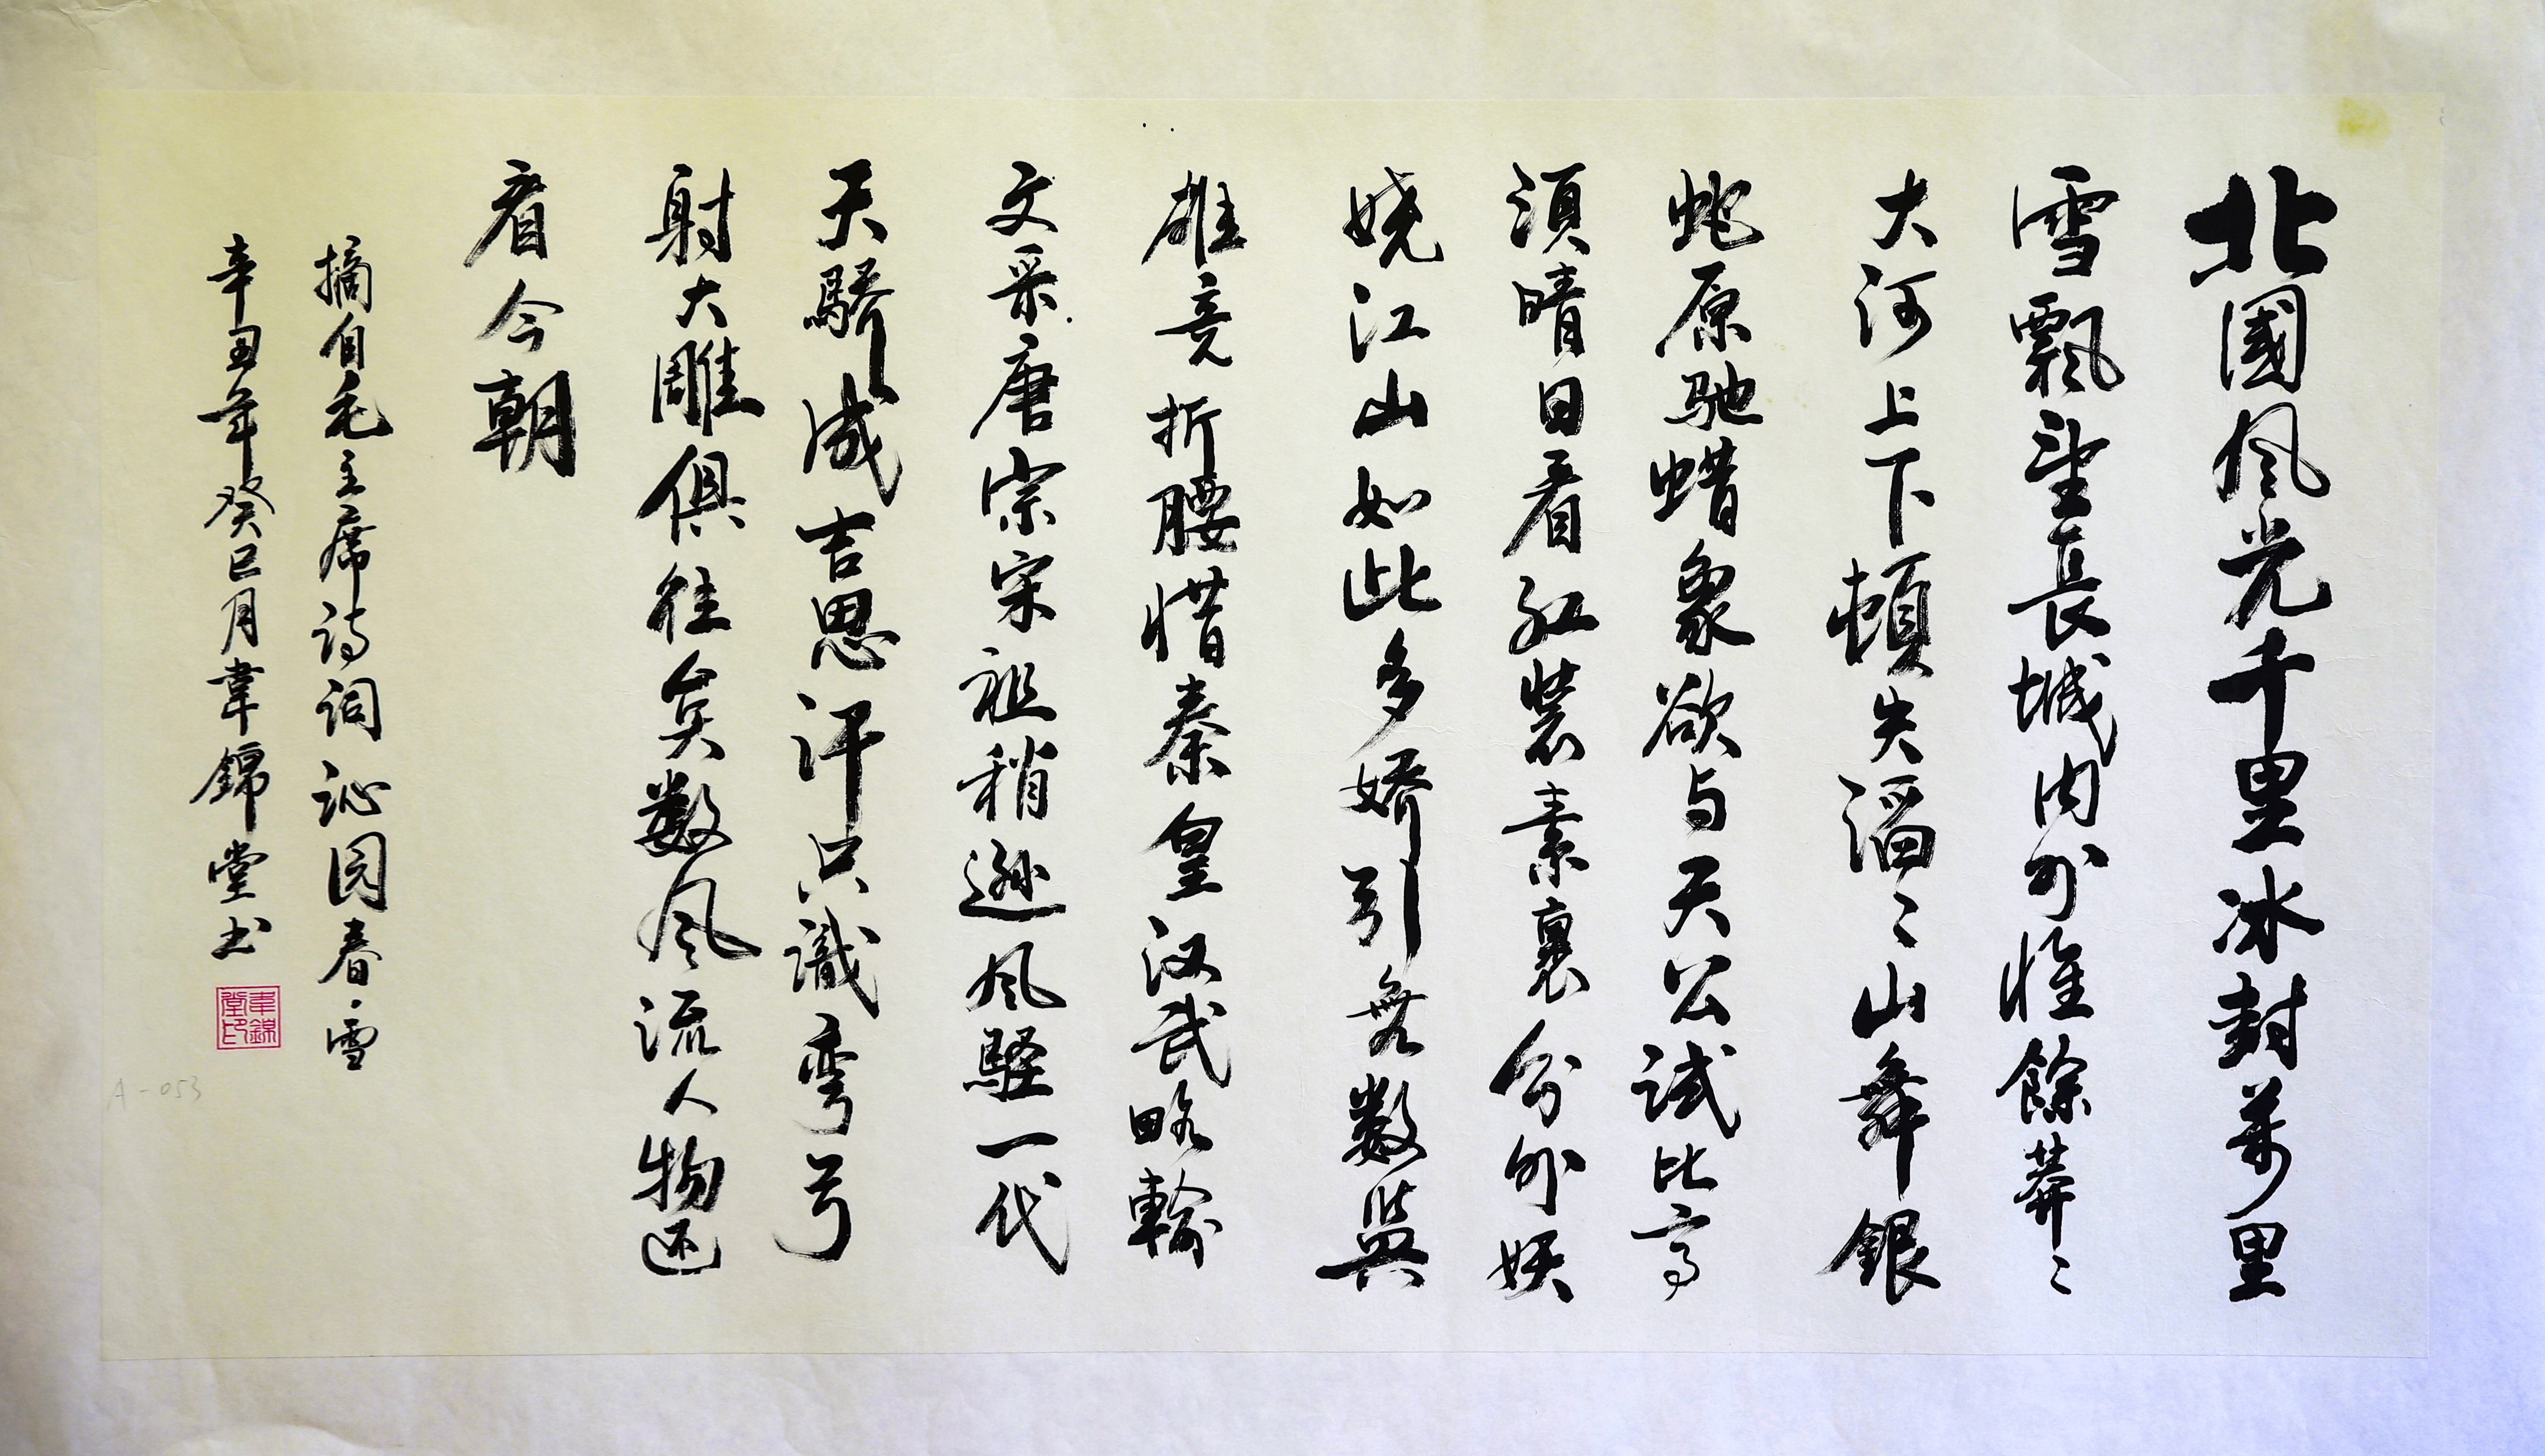 北國风光千里冰封萬里
雪飄望長城内外惟餘莽〻
大河上下頓失滔〻山舞銀
蛇原驰蜡象欲与天公試比高
須晴日看红装素裹分外妖
娆江山如此多娇引無数
雄竞折腰惜秦皇汉武略輸
文采唐宗宋祖稍遜风骚一代
天骄成吉思汗只識弯弓
射大雕俱往矣数风流人物还
看今朝
摘自毛主席诗词沁园春·雪
辛丑年癸巳月韋錦堂书
韋錦堂印
A-053